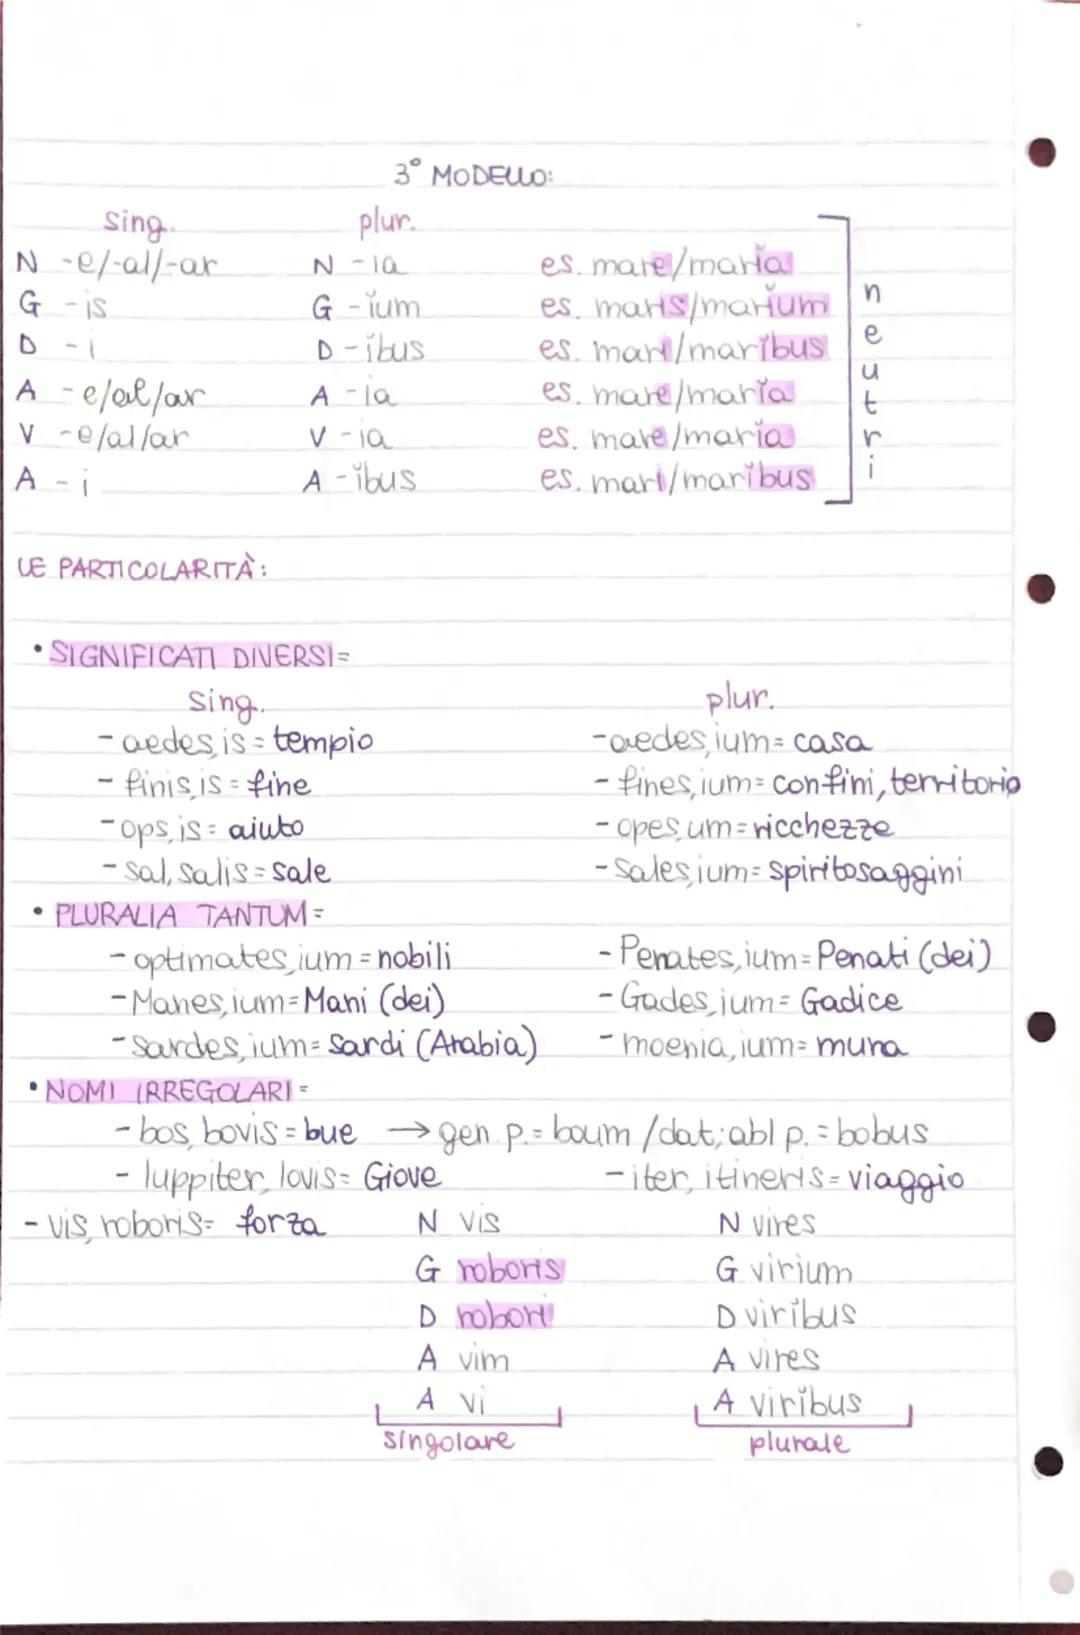 3° MODELLO:
sing. plur.
N -e/-al/-ar N -ia es. mare/marĭa
G -is G -ĭum es. maris/marĭum
D -i D -ĭbus es. mari/marĭbus
A -e/al/ar A -ia es. mare/marĭa
V -e/al/ar V -ia es. mare/marĭa
A -i A -ĭbus es. mari/marĭbus
neutri
LE PARTICOLARITÀ:
• SIGNIFICATI DIVERSI=
sing. plur.
- aedes, is = tempio - aedes, ium = casa
- finis, is = fine - fines, ium = confini, territorio
- ops, is = aiuto - opes, um = ricchezze
- sal, salis = sale - Sales, ium = spiritosaggini
• PLURALIA TANTUM=
- optimates, ium = nobili - Penates, ium = Penati (dei)
- Manes, ium = Mani (dei) - Gades, ium = Gadice
- sardes, ium = Sardi (Arabia) - moenia, ium = mura
• NOMI IRREGOLARI=
- bos, bovis = bue → gen. p. = boum / dat; abl p. = bobus
- Iuppiter, Iovis = Giove - iter, itineris = viaggio
- vis, roboris = forza N vis N vires
G roboris G virium
D robori D virĭbus
A vim A vires
A vi A virĭbus
singolare plurale